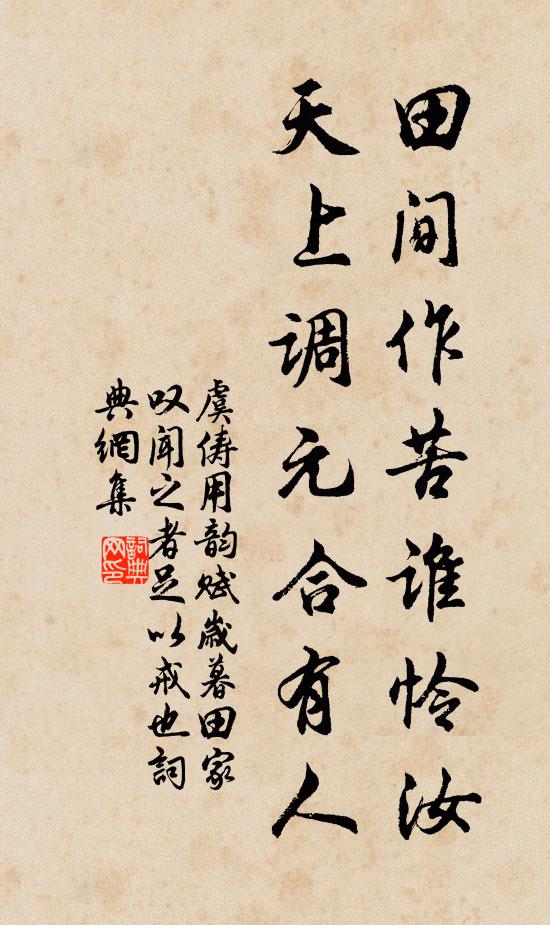 田间作苦谁怜汝
天上调元合有人
虞俦用韵赋岁暮田家
叹闻之者足以戒也词
典網集
詞典網印